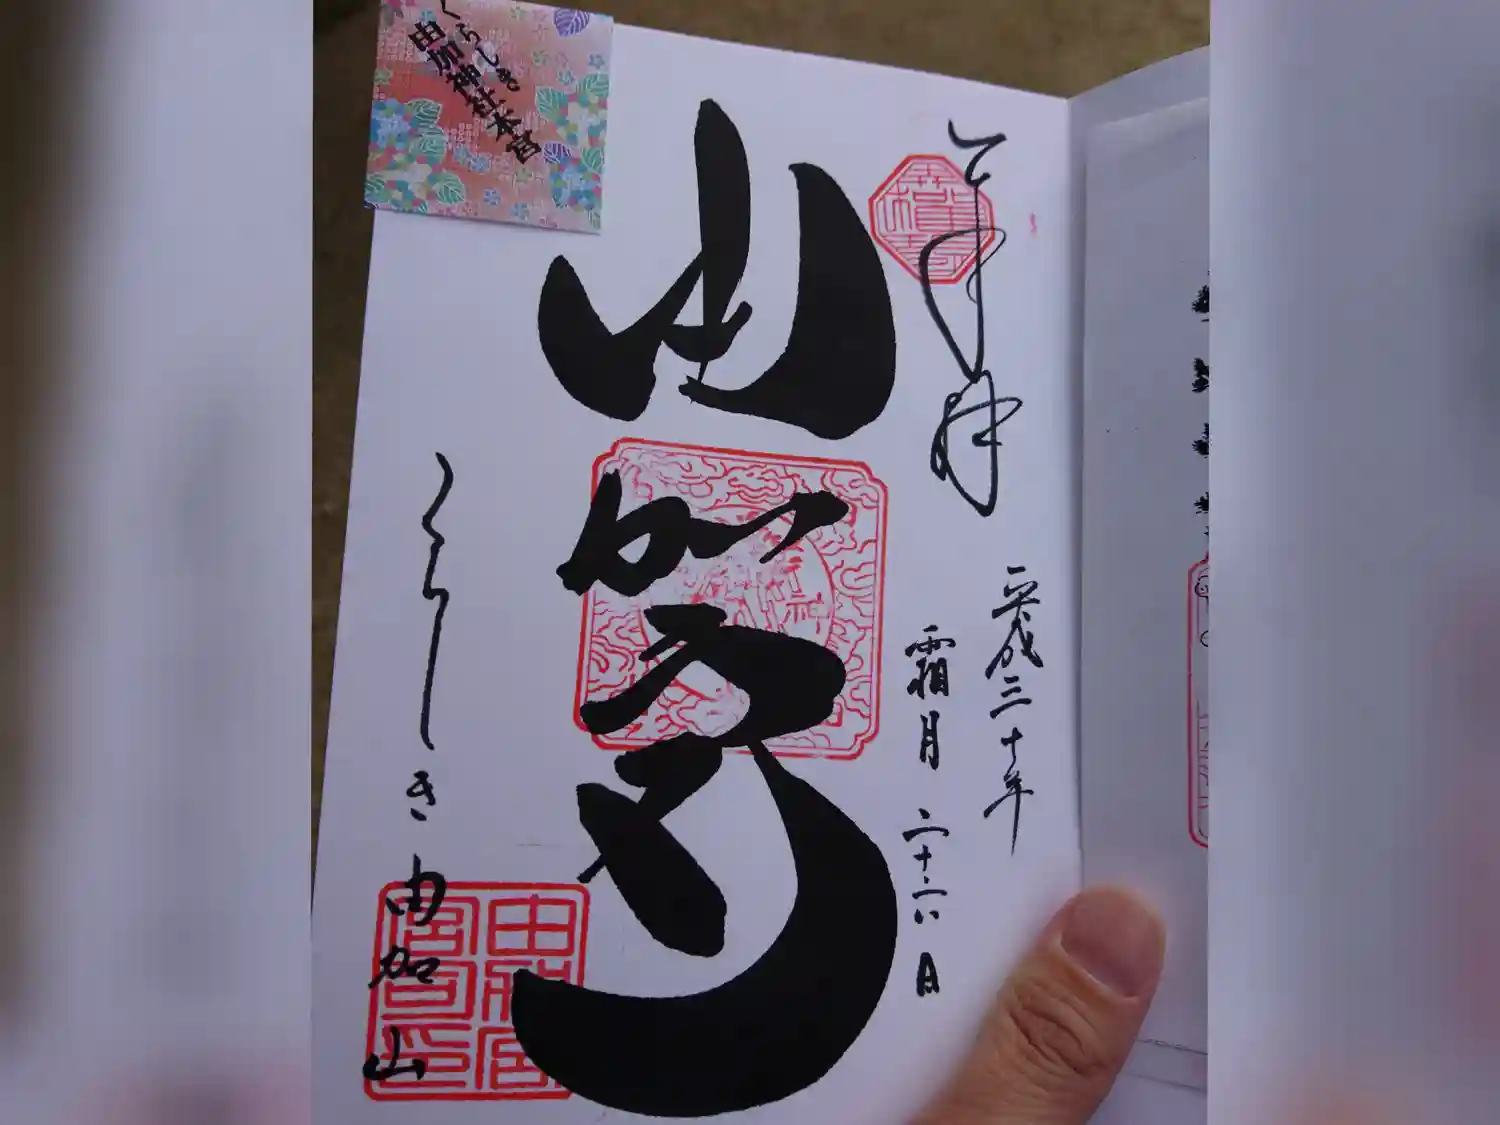 奉拝
平成三十年
霜月 二十六日
由加宮
くらしき 由加山
くらしき
由加神社本宮